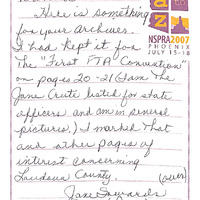 Here is something
for your Archives.
I had kept it for
The "First FTA Convention"
on pages 20-21 (I am the
Jane Crute listed for state
officer and am in several
pictures.) I marked that
and other pages of
interest concerning
Loudoun County.
(over)
Jane Edwards
NSPRA2007
PHOENIX
JULY 15-18